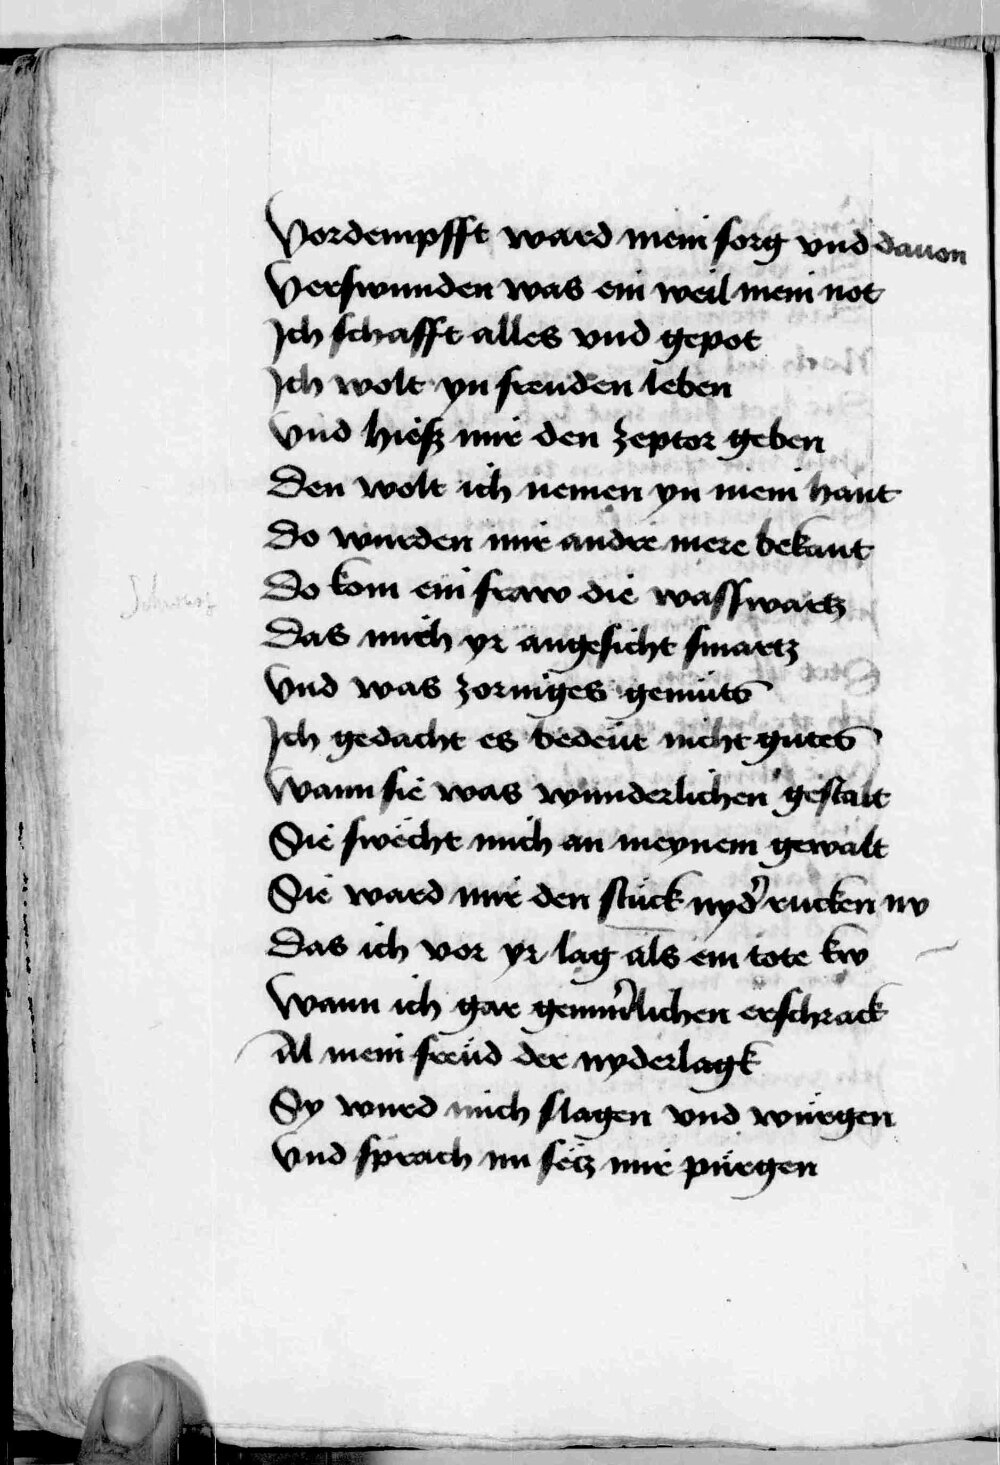 Vordempfft ward mein sorg vnd dauon
Verswunden was ein weil mein not
Ich schafft alles vnd gepot
Ich wolt yn freuden leben
Vnd hiesz mir den zeptor geben
Den wolt ich nemen yn mein hant
Do wurden mir andre mere bekant
Do kom ein fraw die was swartz
Das mich yr angesicht smartz
Vnd was zorniges gemüts
Ich gedacht es bedeüt nicht gutes
Wann sie was wunderlichen gestalt
Sie swecht mich an meynem gewalt
Sie ward mir den stück nyd' rucken nv
Das ich vor yr lag als ein tote kw
Wann ich gar erschrack
Al mein freüd der nyderlagk
Sy wurd mich slagen vnd würgen
Vnd sprach nu setz mir pürgen